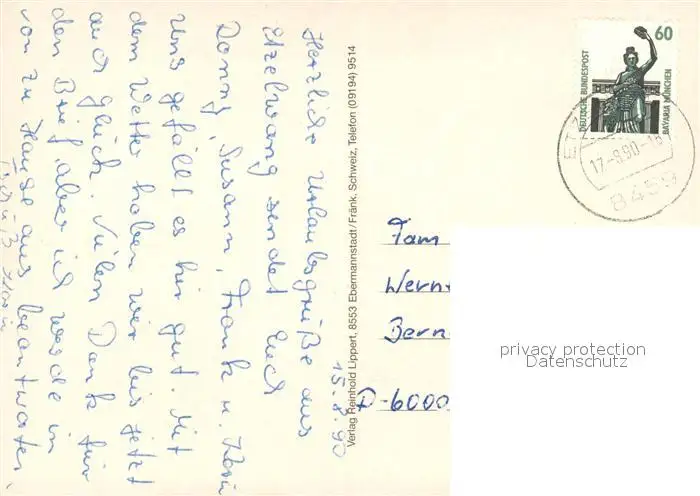 15.8.90
Herzliche Urlaubsgrüße aus
Etzelwang sendet Euch
Conny, Susann, Frank u. Karin
Uns gefällt es hier gut. Mit
dem Wetter haben wir bis jetzt
auch Glück. Vielen Dank für
den Brief, aber ich werde ihn
von zu Hause aus beantworten.
Tschüß Karin
Verlag Reinhold Lippert, 8553 Ebermannstadt/Fränk. Schweiz, Telefon (09194) 9514
60
DEUTSCHE BUNDESPOST
BAVARIA MÜNCHEN
ET
17-8.90-18
8459
Fam
Wern
Bern
D-6000
privacy protection
Datenschutz